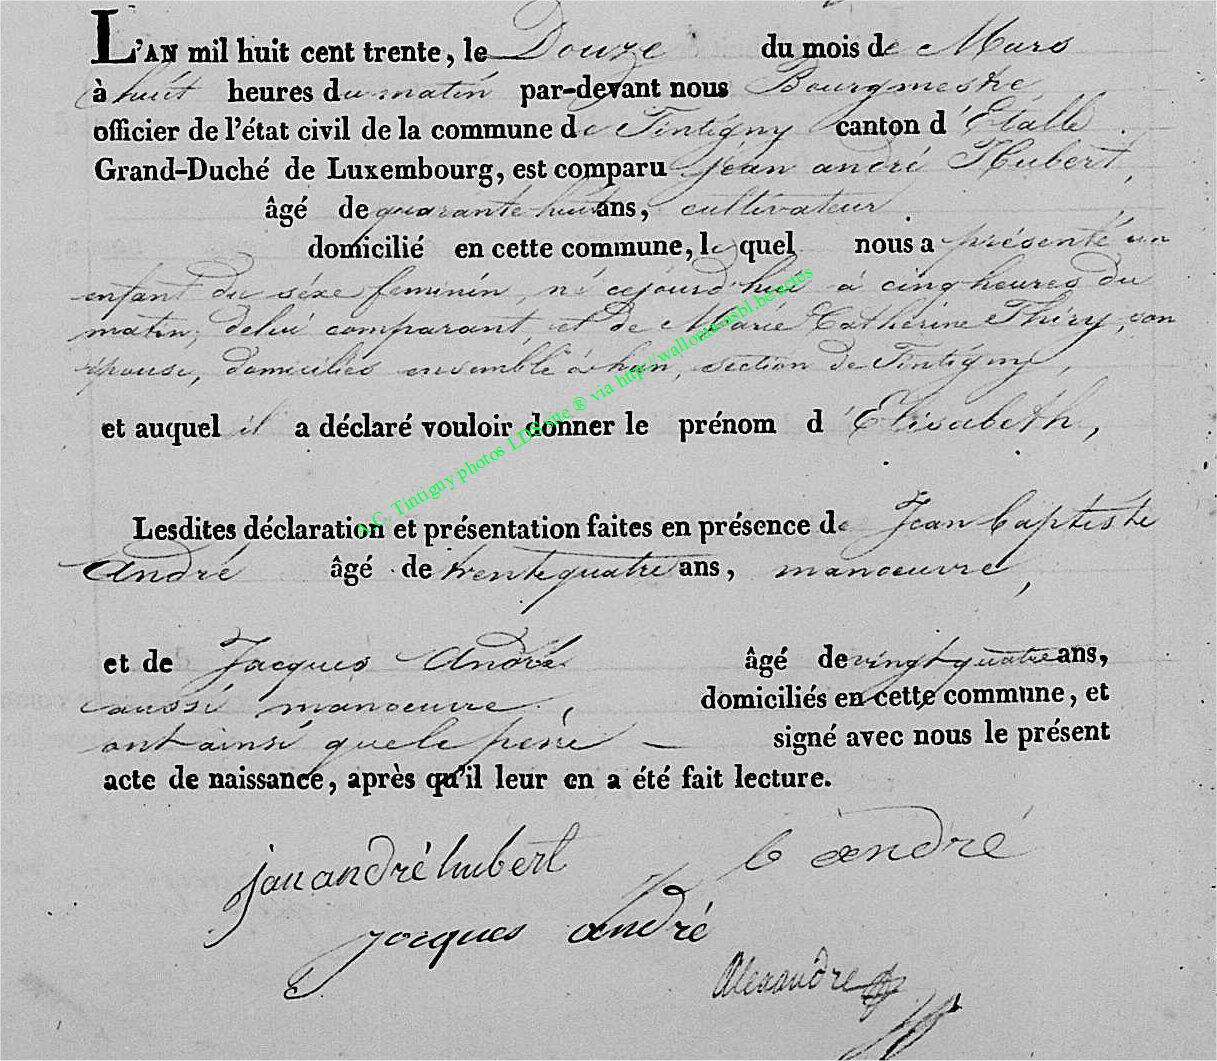 L'AN mil huit cent trente, le Douze du mois de Mars
à huit heures du matin par-devant nous Bourgmestre
officier de l'état civil de la commune de Tintigny canton d'Etalle
Grand-Duché de Luxembourg, est comparu jean andré Hubert,
âgé de quarante huit ans, cultivateur
domicilié en cette commune, lequel nous a présenté un
enfant du séxe feminin, né cejourd'hui à cinq heures du
matin, delui comparant, et de Marie Catherine Thiry, son
épouse, domiciliés ensemble à han, section de Tintigny,
et auquel il a déclaré vouloir donner le prénom d'Elisabeth,
A.C. Tintigny photos LDS site ® via http://wallonia-asbl.be/actes
Lesdites déclaration et présentation faites en présence de Jean baptiste
André âgé de trente quatre ans, manoeuvre,
et de Jacques André âgé de vingt quatre ans,
aussi manoeuvre, domiciliés en cette commune, et
ont ainsi que le pére — signé avec nous le présent
acte de naissance, après qu'il leur en a été fait lecture.
jan andré hubert b andré
jacques andré
Alexandre